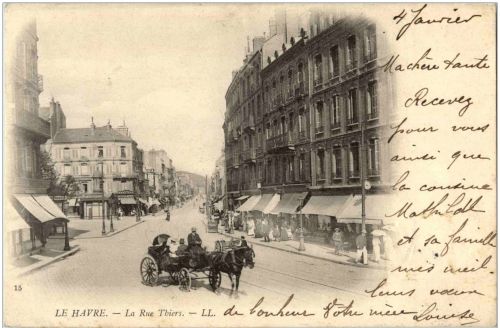 4 Janvier
Ma chère tante
Recevez
pour vous
ainsi que
la cousine
Mathilde
et sa famille
mes meil
leurs vœux
de bonheur Votre nièce
Louise
15
LE HAVRE. — La Rue Thiers. — LL.